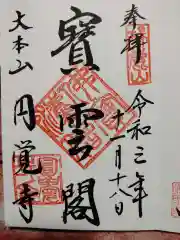 奉拝
令和三年
十一月十八日
寳雲閣
大本山
円覚寺